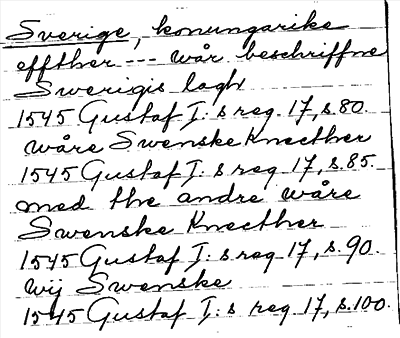 Sverige, konungarike
effther --- wår beschriffne
Swerigis lagh
1545 Gustaf I: s reg. 17, s.80.
wåre Swenske Knecther
1545 Gustaf I: s reg. 17, s.85.
med the andre wåre
Swenske Knecther
1545 Gustaf I: s reg. 17, s.90.
wij Swenske
1545 Gustaf I: s reg. 17, s.100.